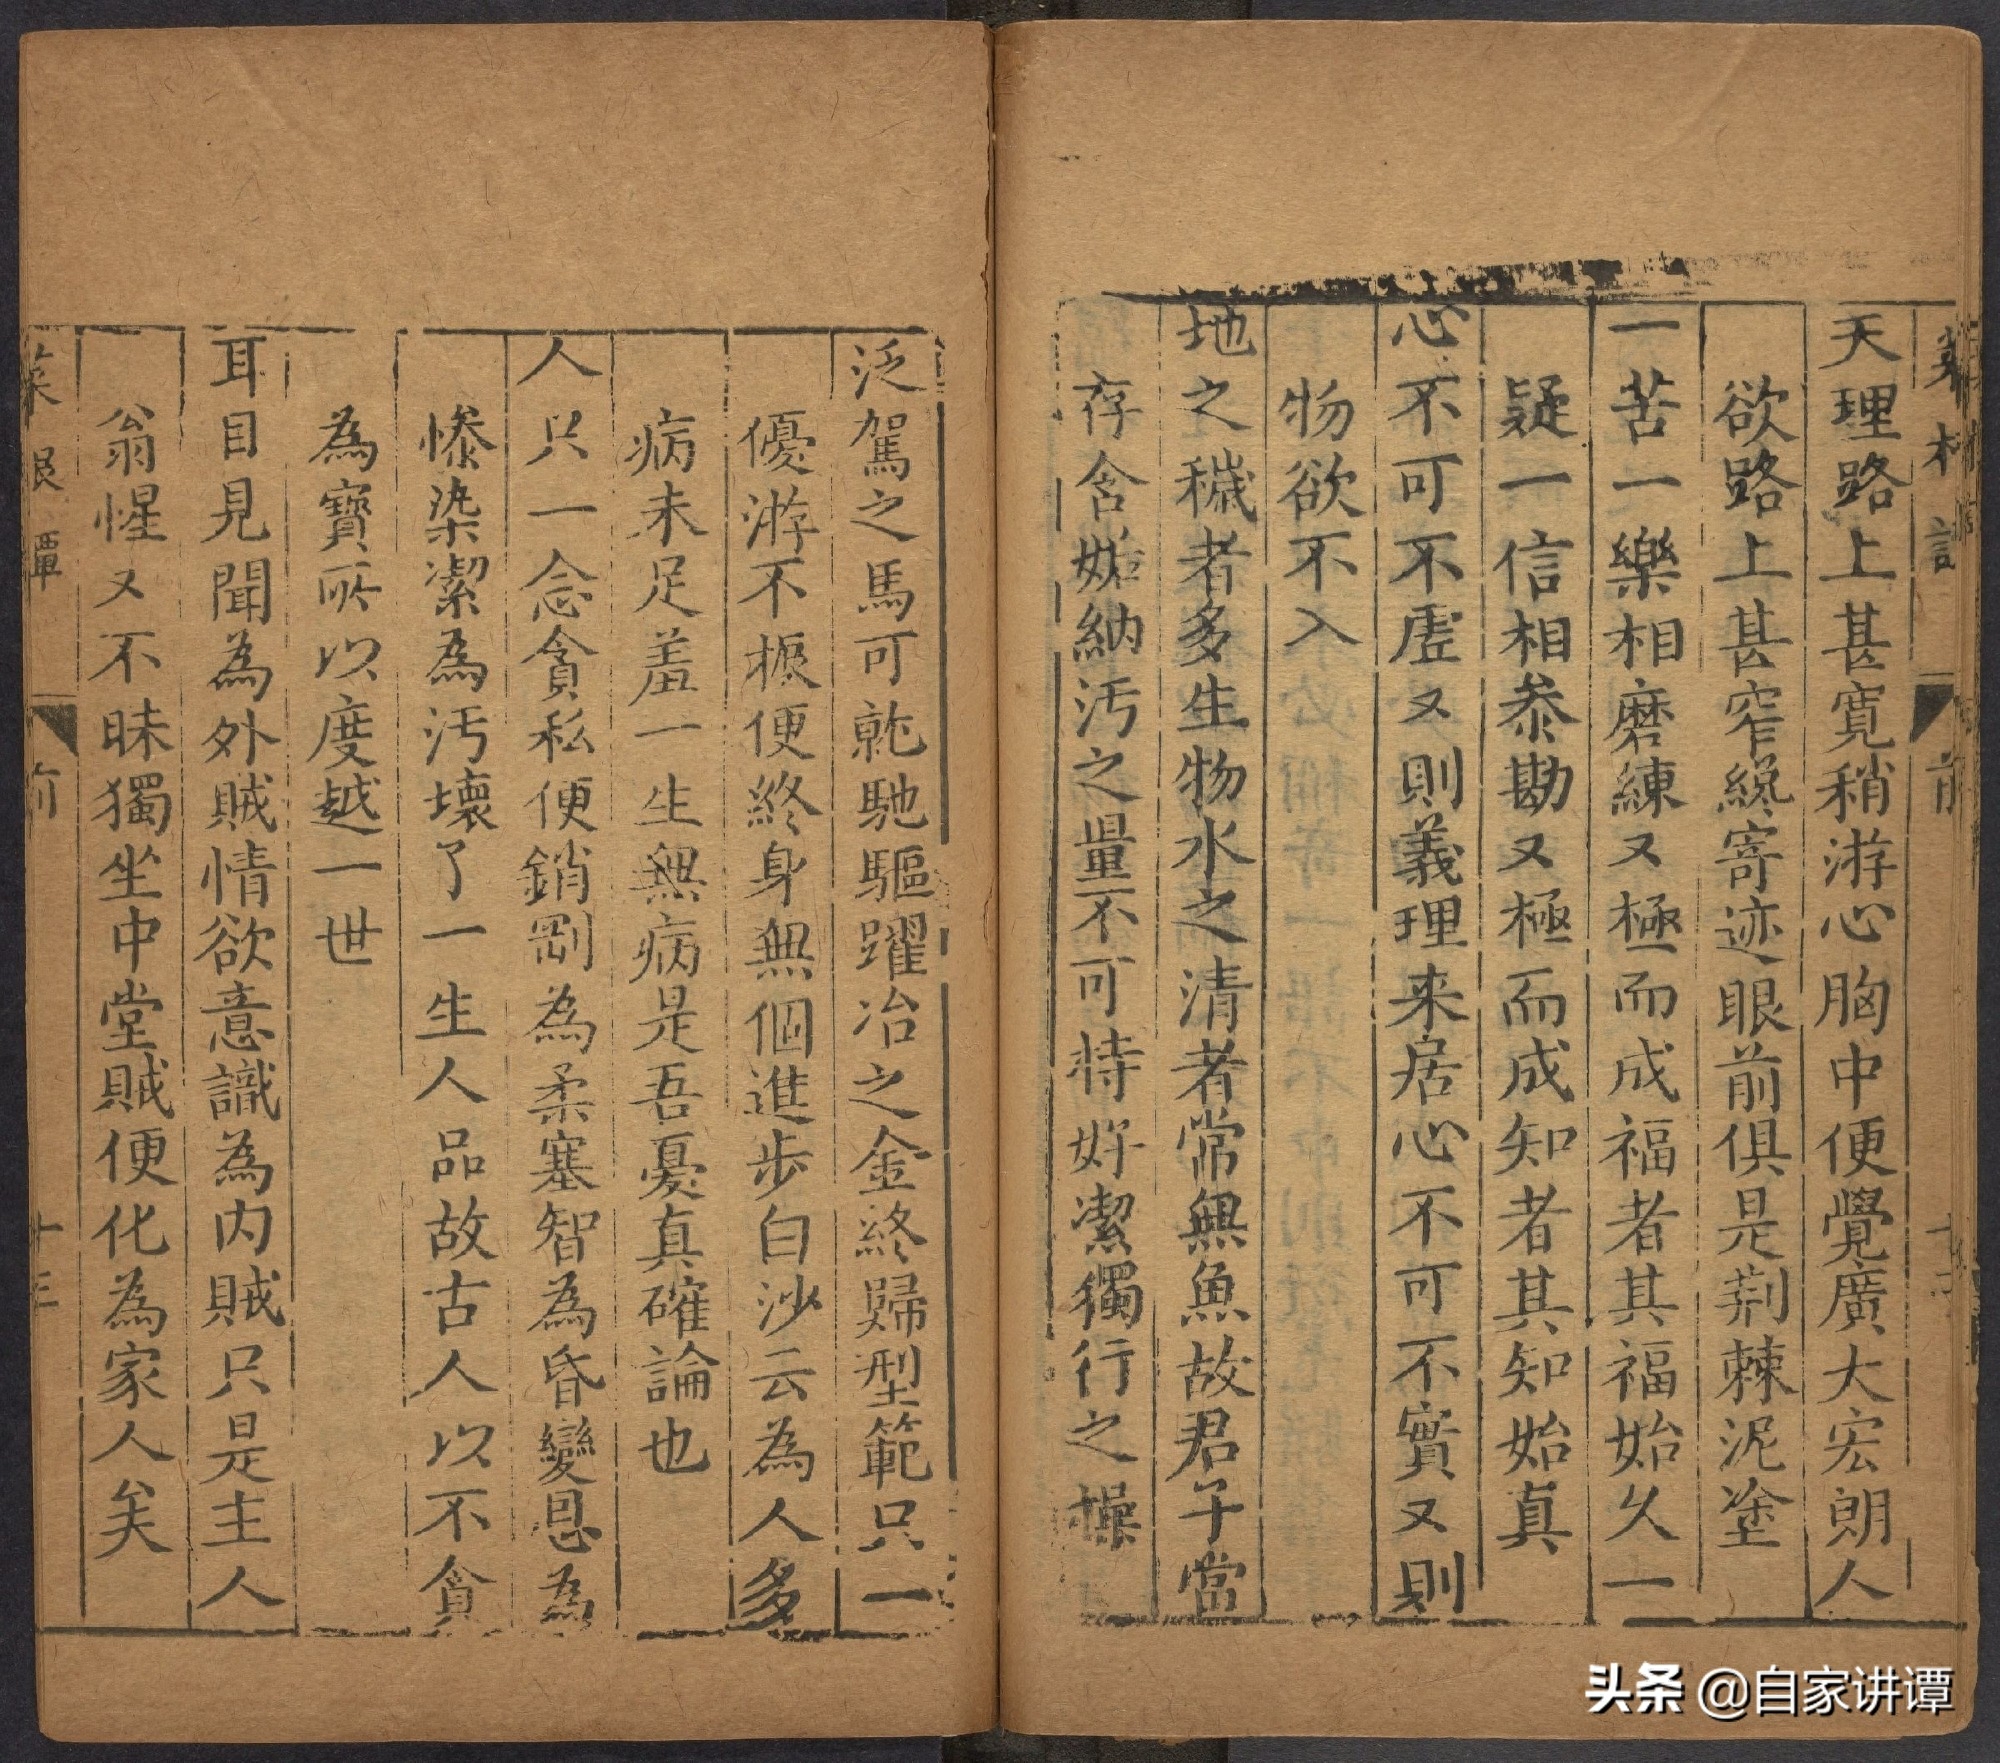 天理路上甚寬稍游心胸中便覺廣大宏朗人
欲路上甚窄纔寄迹眼前俱是荆棘泥塗
一苦一樂相磨練又極而成福者其福始久一
疑一信相參勘又極而成知者其知始真
心不可不虛又則義理来居心不可不實又則
物欲不入
地之穢者多生物水之清者常無魚故君子當
存含姤納汚之量不可持好潔獨行之操
泛駕之馬可就馳驅躍冶之金終歸型範只一
優游不振便終身無個進步白沙云為人多
病未足羞一生無病是吾憂真確論也
人只一念貪私便銷剛為柔塞智為昏變恩為
慘染潔為汚壞了一生人品故古人以不貪
為寶所以度越一世
耳目見聞為外賊情欲意識為内賊只是主人
翁惺又不昧獨坐中堂賊便化為家人矣
菜根譚 前 十三
头条 @自家讲谭